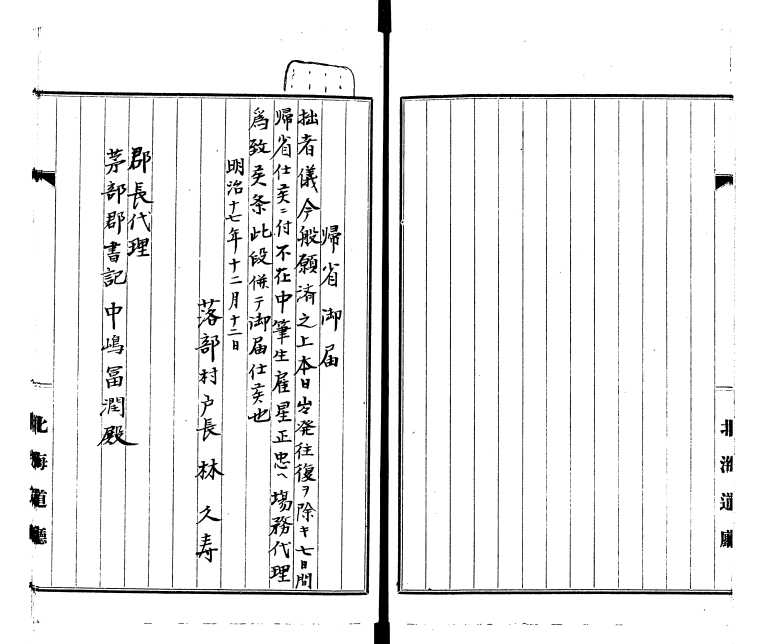 帰省御届
拙者儀今般願済之上本日出発往復ヲ除キ七日間
帰省仕候ニ付不在中筆生雇星正忠ヘ場務代理
為致候条此段併テ御届仕候也
明治十七年十二月十二日
落部村戸長 林久寿
郡長代理
茅部郡書記 中嶋冨潤殿
北海道廳
北海道廳